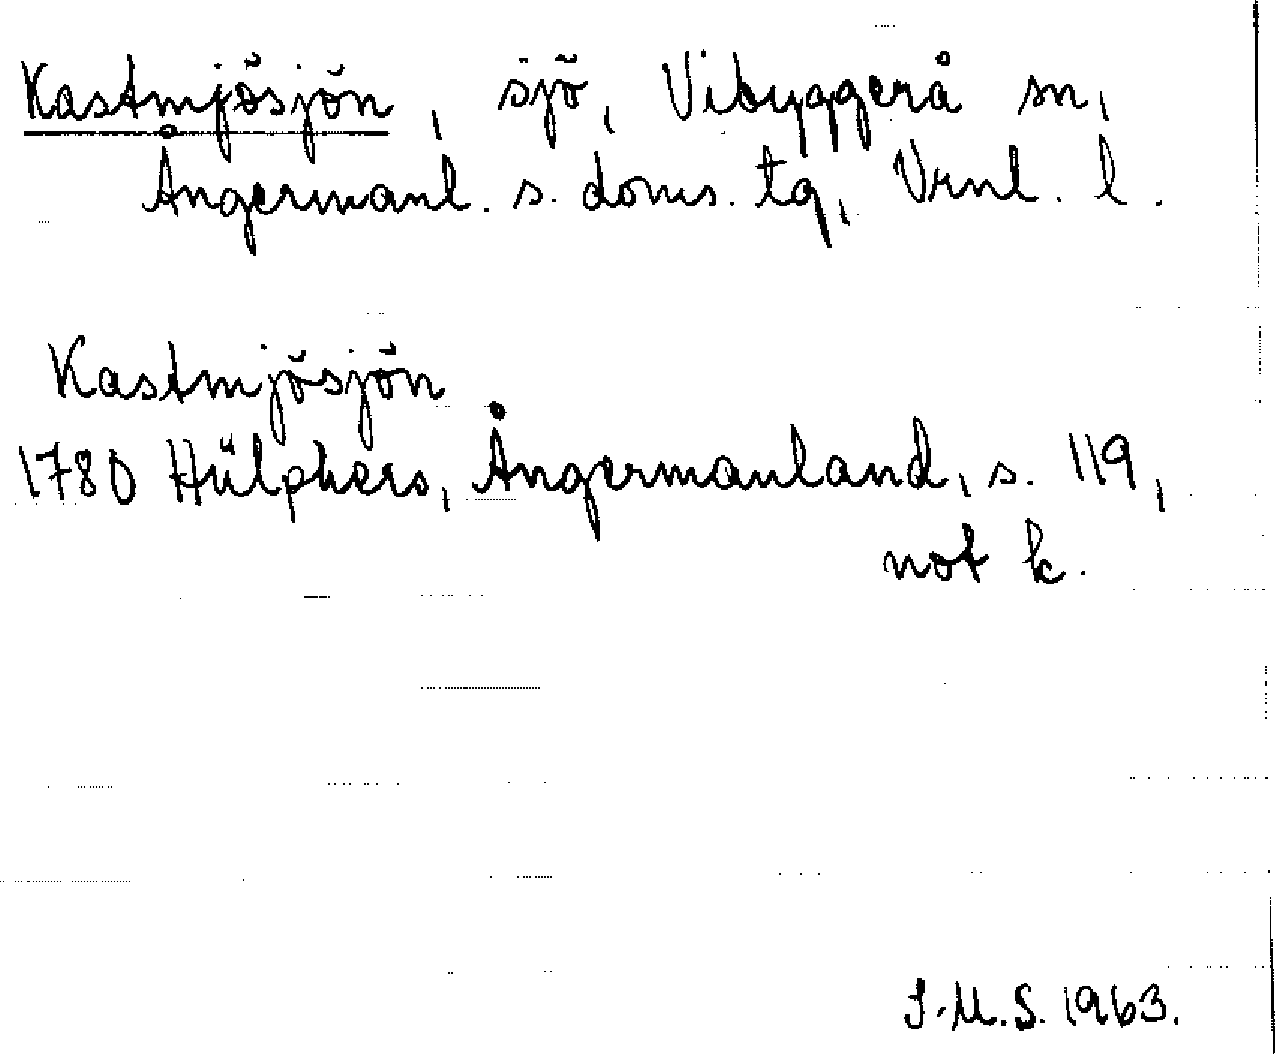 Kastmjösjön, sjö, Vibyggerå sn,
Ångermanl. s. doms. tg, Vrnl. l.
Kastmjösjön
1780 Hülphers, Ångermanland, s. 119,
not k.
I.M.S. 1963.